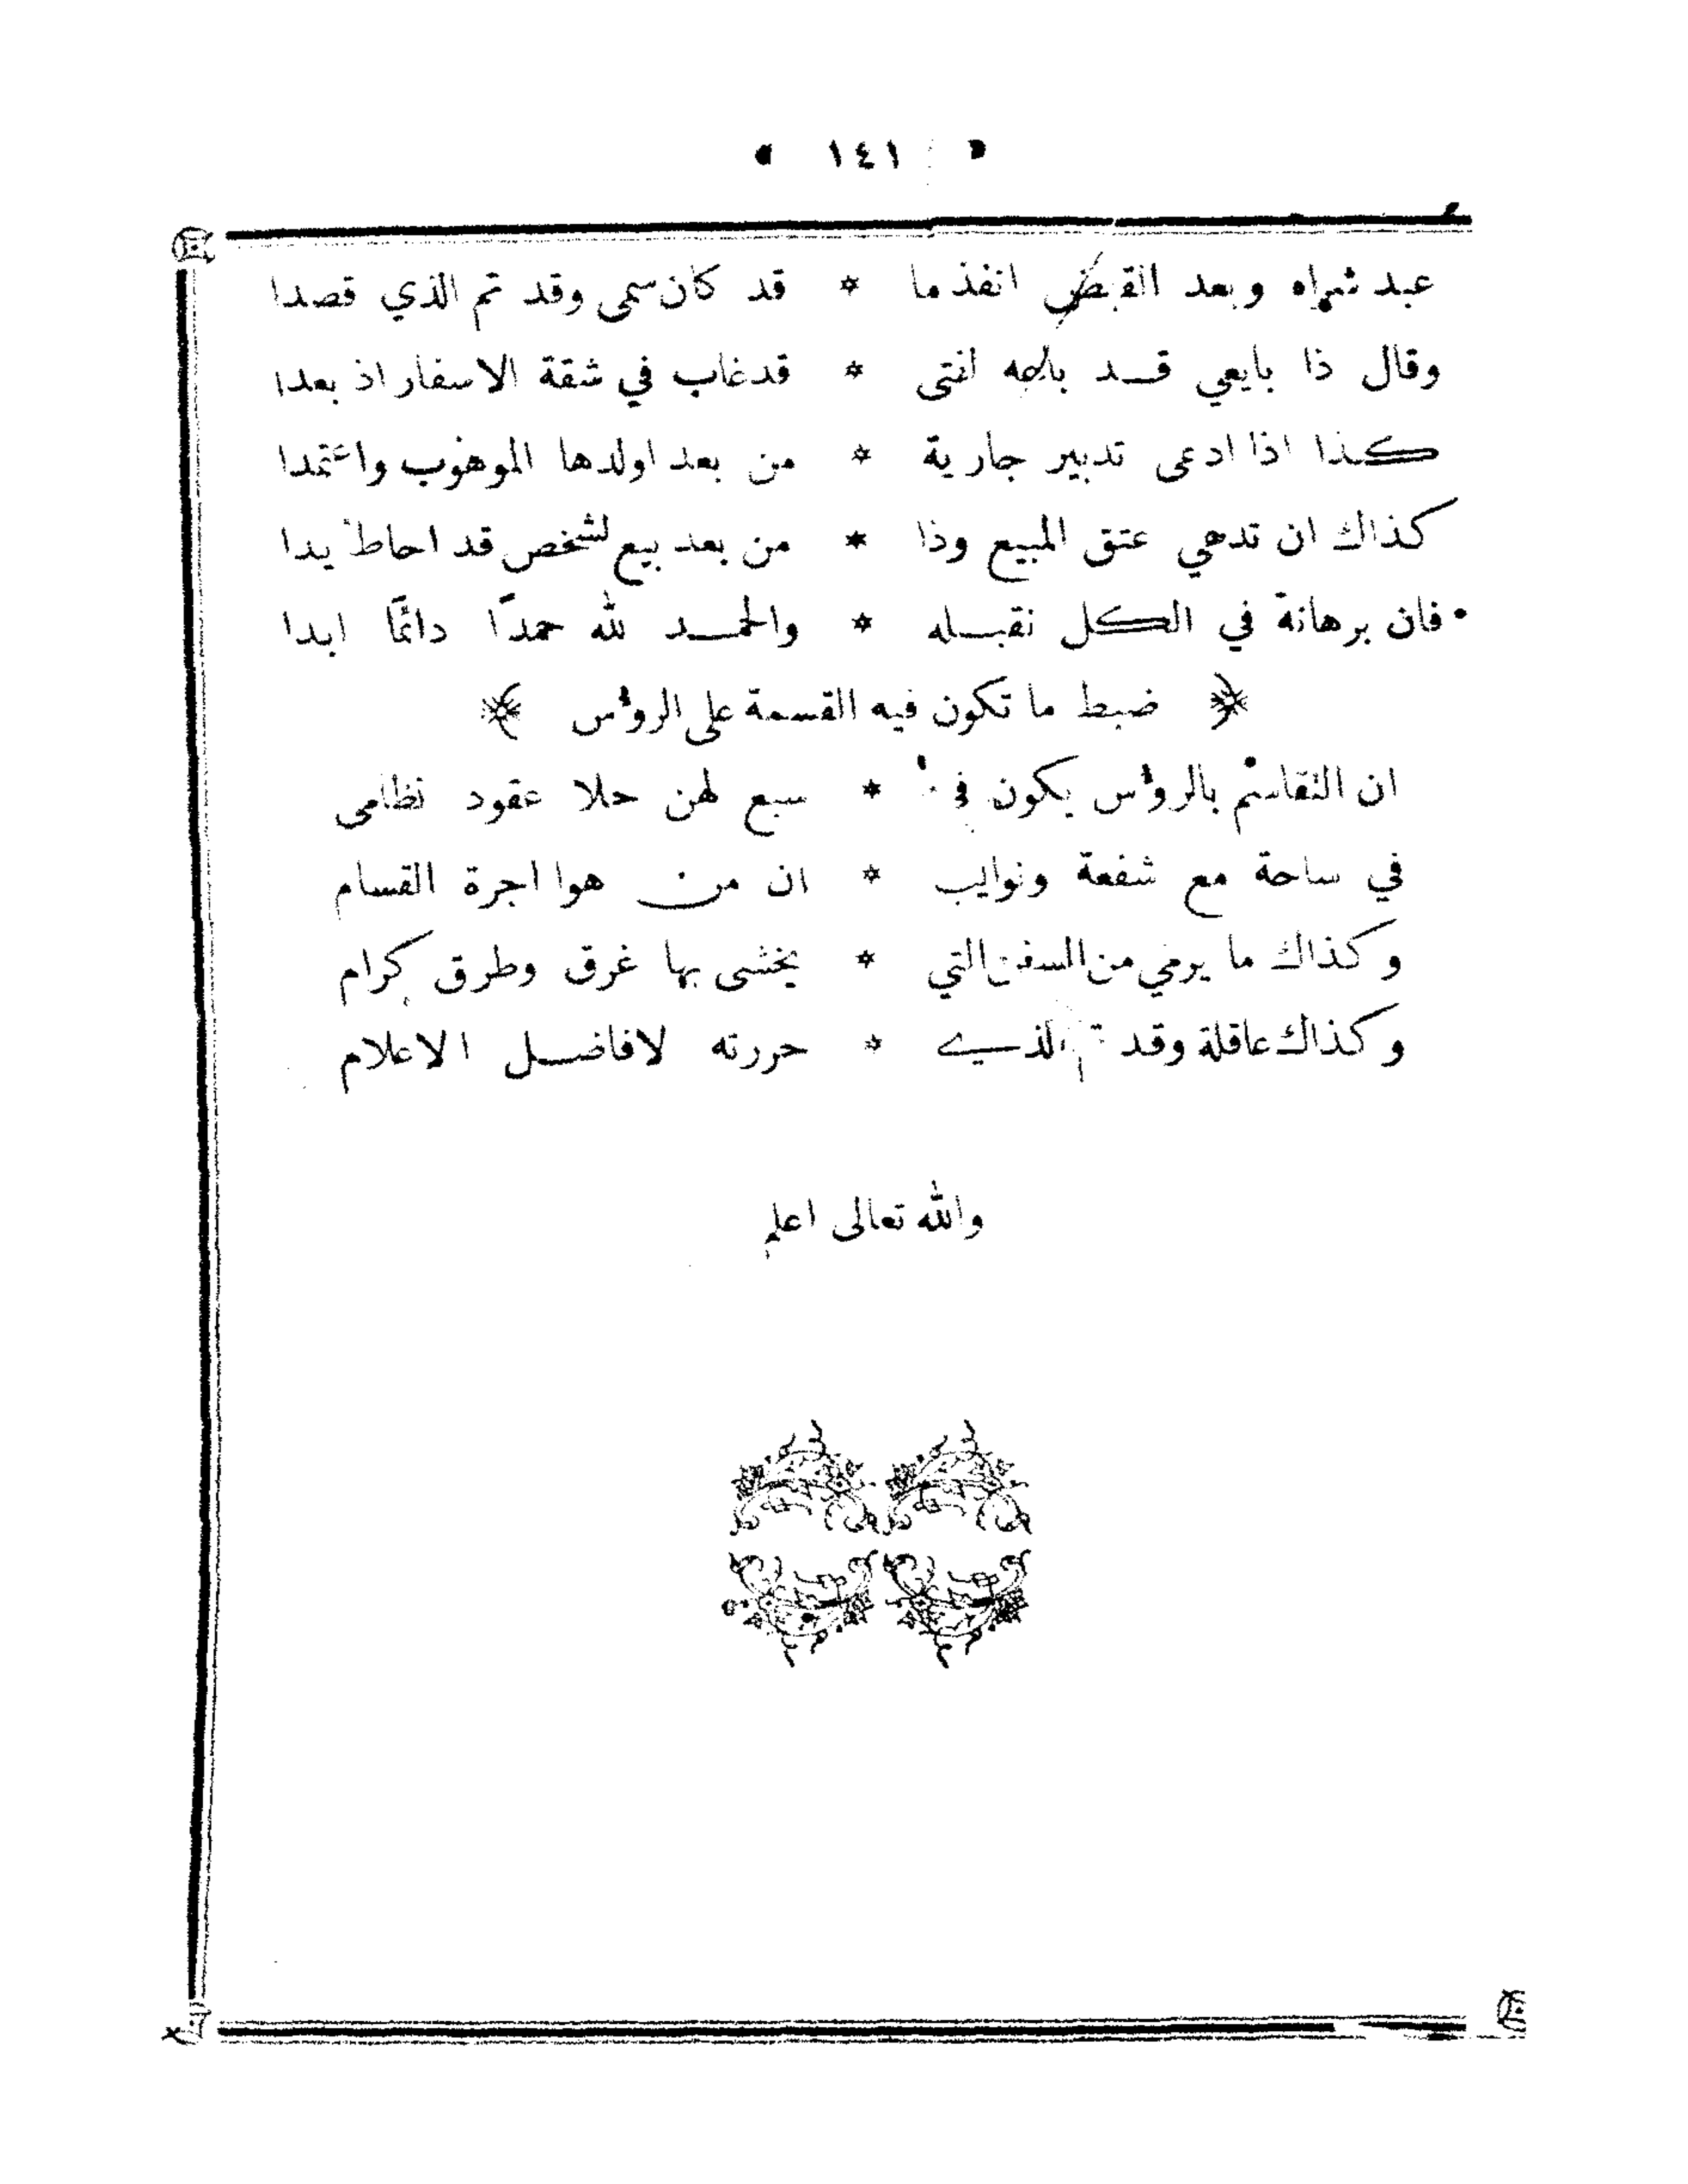 ﴿ ١٤١ ﴾
عبد شراه وبعد القبض انفذ ما * قد كان سمى وقد تم الذي قصدا
وقال ذا بايعي قد باعه لفتى * قد غاب في شقة الاسفار اذ بعدا
كذا اذا ادعى تدبير جارية * من بعد اولدها الموهوب واعتمدا
كذاك ان تدعي عتق المبيع وذا * من بعد بيع لشخص قد احاط يدا
فان برهانة في الكل نقبله * والحمد لله حمدًا دائمًا ابدا
﴿ ضبط ما تكون فيه القسمة على الروٴس ﴾
ان التقاسم بالروٴس يكون في * سبع لهن حلا عقود نظامي
في ساحة مع شفعة ونوايب * ان من هوا اجرة القسام
وكذاك ما يرمي من السفن التي * يخشى بها غرق وطرق كرام
وكذاك عاقلة وقد تم الذي * حررته لافاضل الاعلام
والله تعالى اعلم